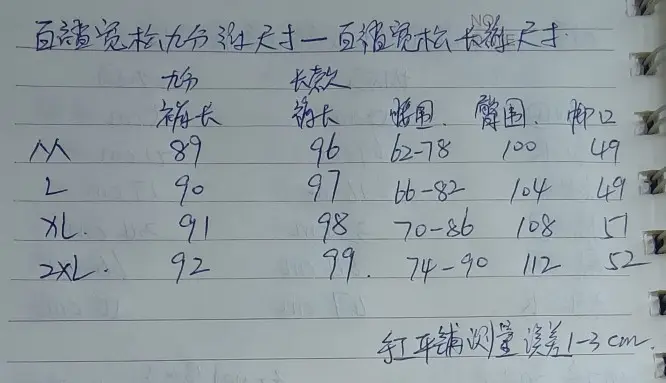 百褶宽松九分裤尺寸一百褶宽松长裤尺寸
九分 长款
裤长 裤长 腰围. 臀围. 脚口
M 89 96 62-78 100 49
L 90 97 66-82 104 49
XL. 91 98 70-86 108 51
2XL. 92 99. 74-90 112 52
手工平铺测量误差1-3cm.